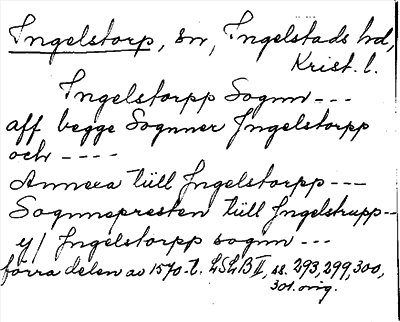 Ingelstorp, sn, Ingelstads hd,
Krist. l.
Ingelstorpp Sognn ---
aff begge Sognner Ingelstorpp
och ----
Annexa tiill Ingelstorpp ---
Sognnepresten tiill Ingelstrupp--
y/ Ingelstorpp sognn ---
förra delen av 1570-t. LSLB II, ss. 293, 299, 300,
301. orig.